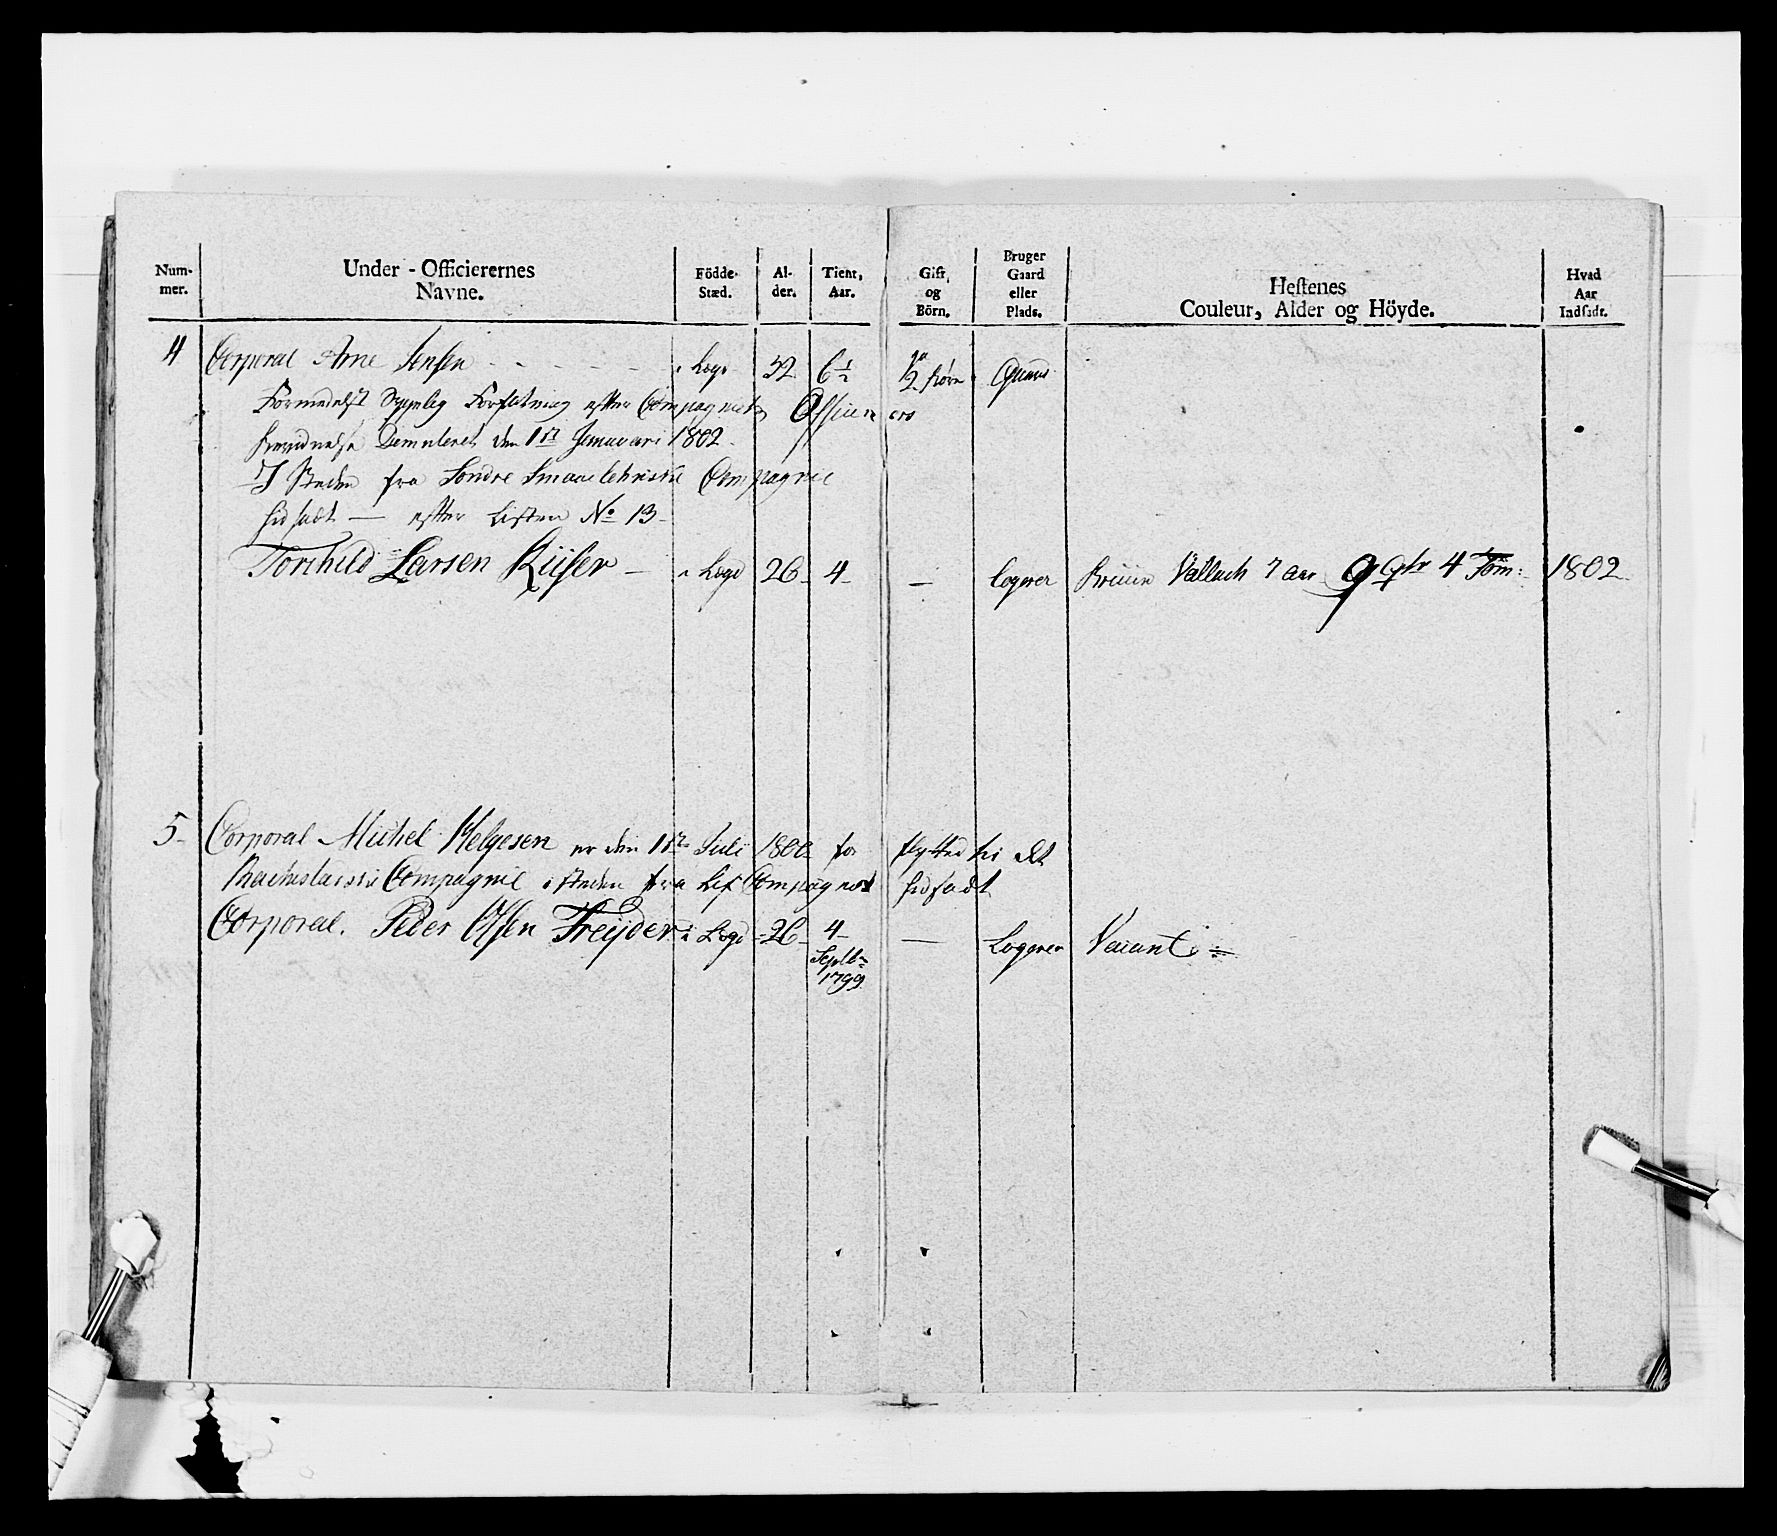 Num-
mer.
Under - Officierernes
Navne.
Födde-
Stæd.
Al-
der.
Tient,
Aar.
Gift,
og
Börn.
Bruger
Gaard
eller
Plads.
Hestenes
Couleur, Alder og Höyde.
Hvad
Aar
Indsadt.
4 Corporal Arne Jensen - - - - - - 32 6½ 2 børn
Formedelst Sygelig Forfatning efter Compagniets Officiers
Demiteret den 1st Januari 1802.
I Steden fra Søndre Smaalehnske Compagnie
hidsadt — efter Listen No 13-
Torchild Larsen Kiiser — 26 4 — Logerer Bruun Vallach 7 Aar 9 Qtr 4 Tom: 1802
5 Corporal Michel Helgesen er den 1ste Juli 1800 for flytted til det
Compagnie i steden fra Lif Compagniet hidsadt
Corporal. Peder Olsen Freyder 26 4 — Logerer Vacant
Septbr
1799